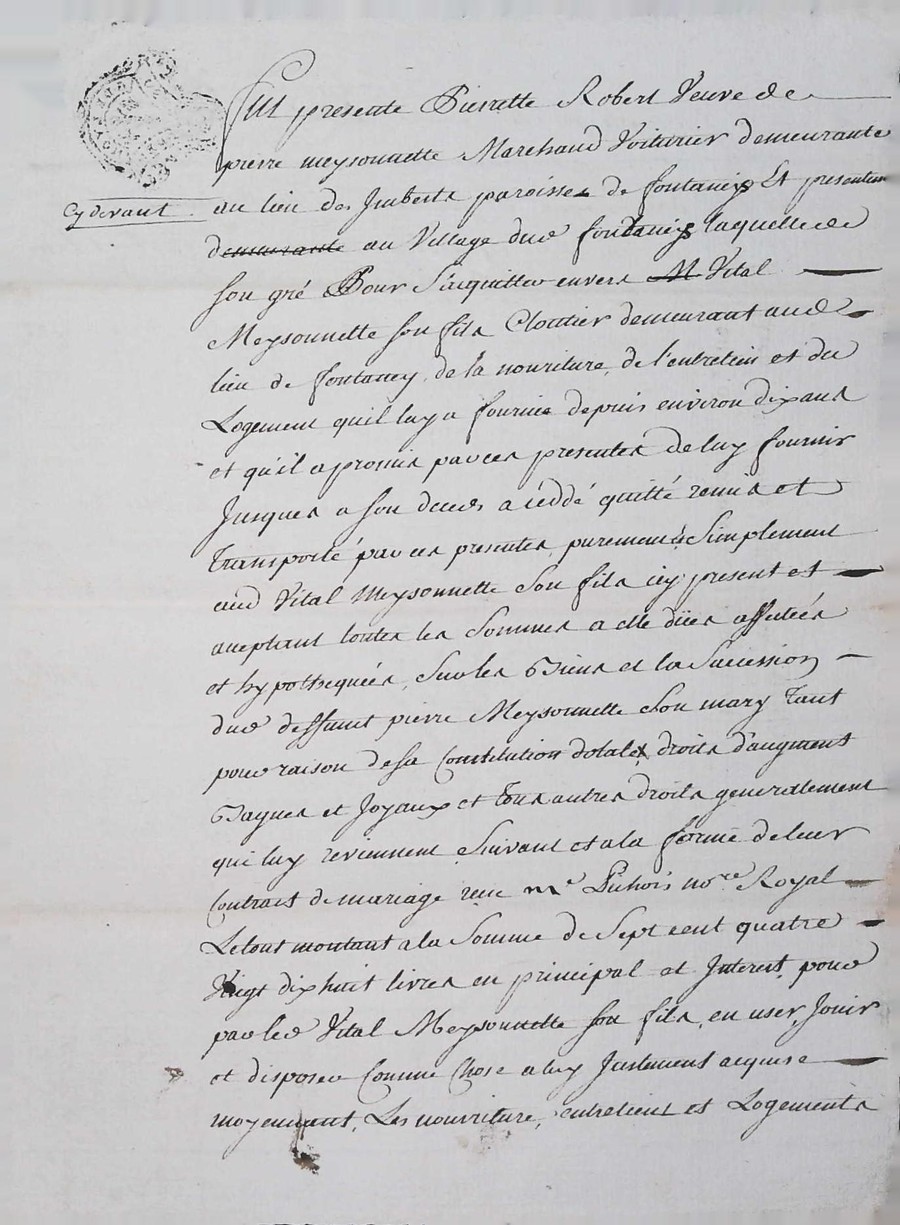 Fut presente Pierrette Robert Veuve de
pierre meysonnette Marchand Voiturier demeurante
Cy devant au lieu des Imberts paroisse de fontaneys Et presentem
demeurante au Village dud fontaneys laquelle de
son gré Pour S'acquitter envers M Vital
Meysonnette son fils Cloutier demeurant aud
lieu de fontaney, de la nouriture, de l'entretein et du
Logement qu'il luy a fournie depuis environ dix ans
et qu'il a promis par ces presentes de luy fournir
Jusques a son deces a céddé quitté remis et
Transporté par ces presentes purement & Simplement
aud Vital Meysonnette Son fils icy present et
aceptant toutes les Sommes a elle dües affectées
et hypothequées, Sur les Biens et la Succession
dud deffunt pierre Meysonnette Son mary Tant
pour raison de sa Constitution dotale, droits d'augment
Bagues et Joyaux et tous autres droits generallement
qui luy reviennent Suivant et a la forme de leur
Contrat de mariage reçu me Pichois nore Royal
Le tout montant a la Somme de Sept cent quatre
Vingt dix huit livres en principal et Interest, pour
par led Vital Meysonnette son fils, en user, Jouir
et disposer Comme Chose a luy Justement acquise
moyennant, Les nourriture, entretient et Logements